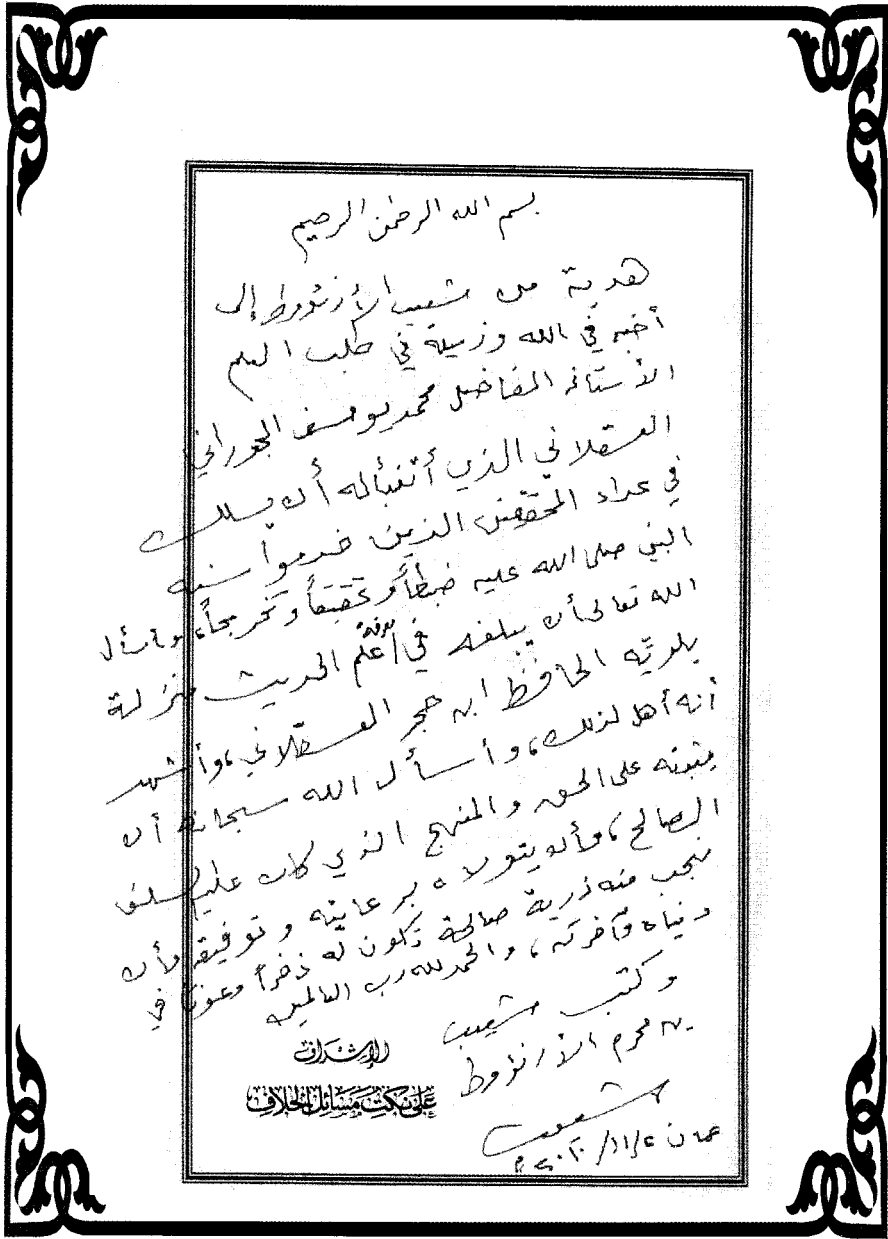 بسم الله الرحمن الرحيم
هدية من شعيب الأرنؤوط إلى
أخيه في الله وزميله في طلب العلم
الأستاذ الفاضل محمد يوسف الجوراني
العسقلاني الذي أتنبأ له أن يسلك
في عداد المحققين الذين خدموا سنة
النبي صلى الله عليه ضبطاً وتحقيقاً وتخريجاً، وأسأل
الله تعالى أن يبلغه في معرفة علم الحديث منزلة
بلديّه الحافظ ابن حجر العسقلاني، وأشهد
أنه أهل لذلك، وأسأل الله سبحانه أن
يثبته على الحق والمنهج الذي كان عليه السلف
الصالح، وأن يتولاه برعايته وتوفيقه وأن
ينجب منه ذرية صالحة تكون له ذخراً وعوناً في
دنياه وآخرته، والحمد لله رب العالمين
وكتب شعيب
بن محرم الأرنؤوط
شعيب
عمان
الإشراف
على نكت مسائل الخلاف